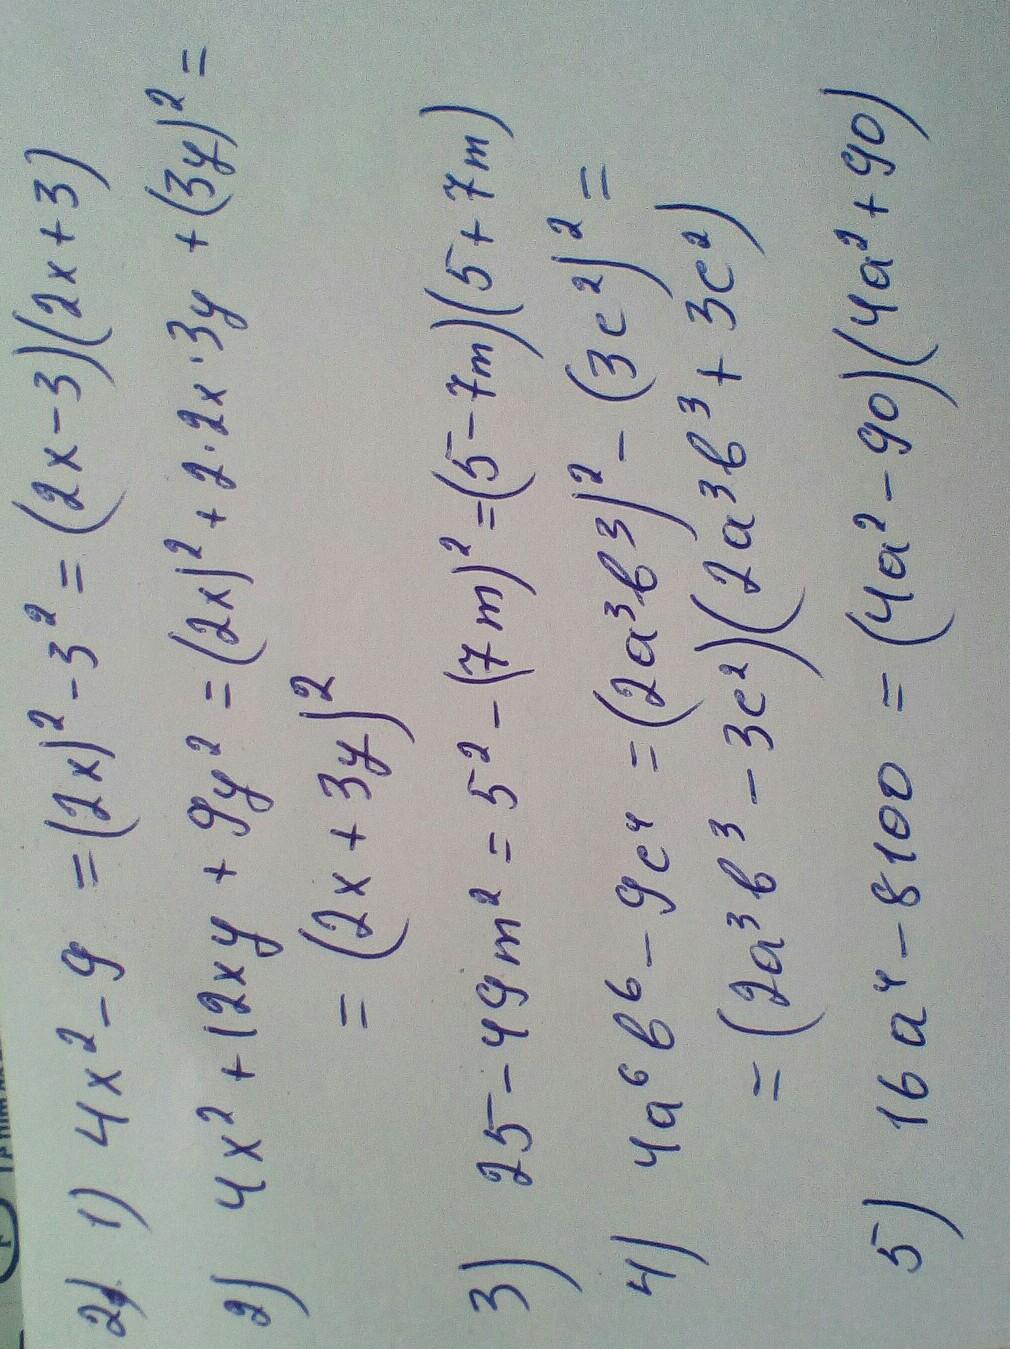 2) 1) 4x² - 9 = (2x)² - 3² = (2x - 3)(2x + 3)
2) 4x² + 12xy + 9y² = (2x)² + 2·2x·3y + (3y)² =
= (2x + 3y)²
3) 25 - 49m² = 5² - (7m)² = (5 - 7m)(5 + 7m)
4) 4a⁶в⁶ - 9c⁴ = (2a³в³)² - (3c²)² =
= (2a³в³ - 3c²)(2a³в³ + 3c²)
5) 16a⁴ - 8100 = (4a² - 90)(4a² + 90)